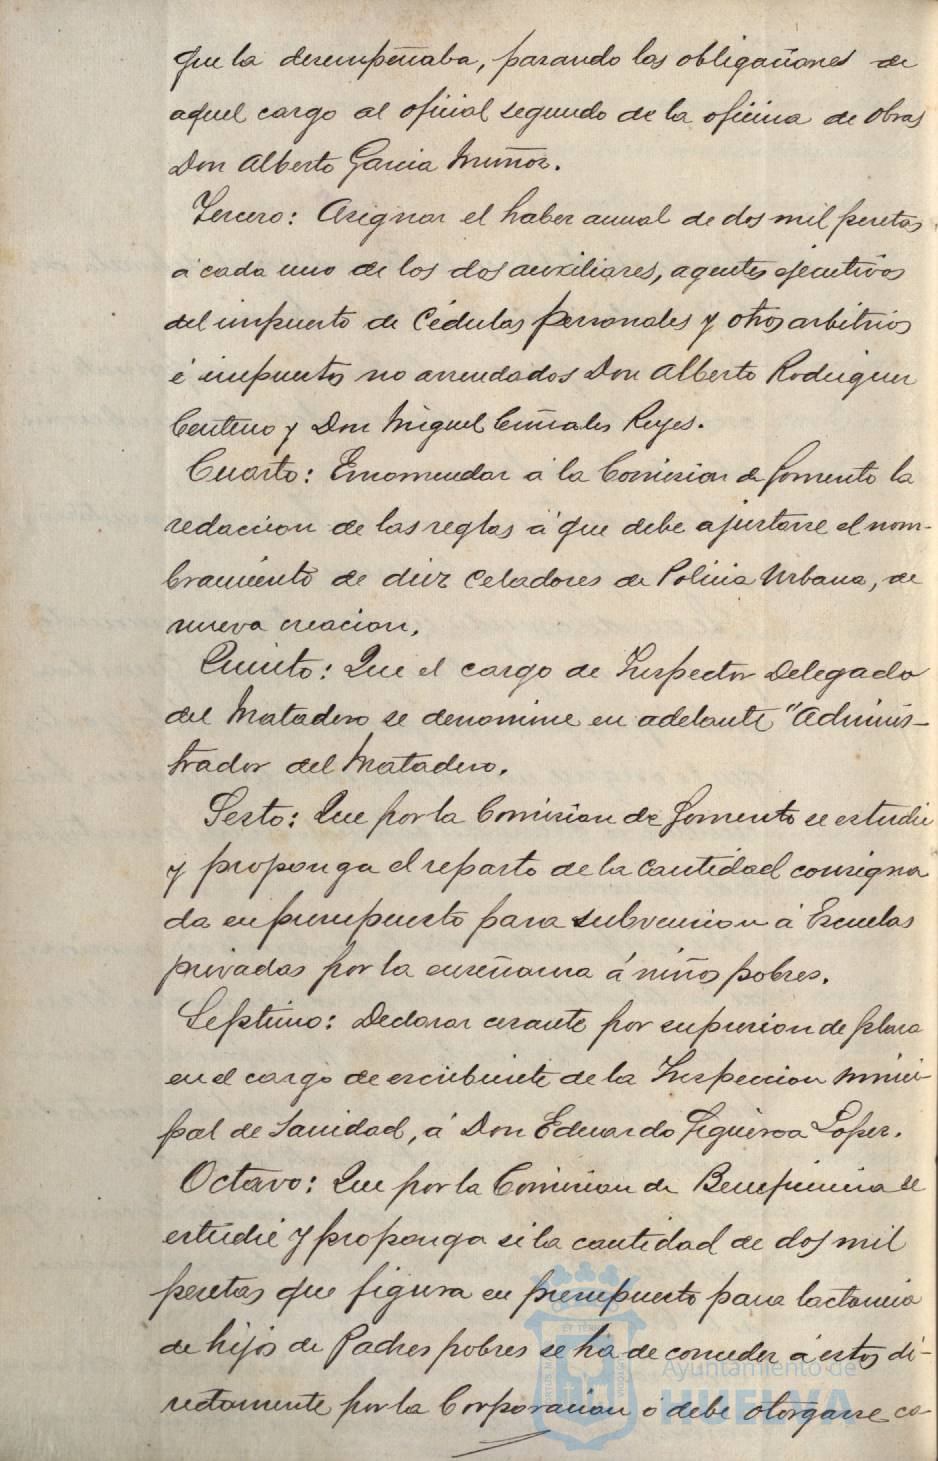 que la desempeñaba, pasando las obligaciones de
aquel cargo al oficial segundo de la oficina de Obras
Don Alberto Garcia Muñoz.
Tercero: Asignar el haber anual de dos mil pesetas
á cada uno de los dos auxiliares, agentes ejecutivos
del impuesto de Cédulas personales y otros arbitrios
é impuestos no arrendados Don Alberto Rodriguez
Centeno y Don Miguel Reyes.
Cuarto: Encomendar á la Comision de Fomento la
redaccion de las reglas á que debe ajustarse el nom-
bramiento de diez Celadores de Policia Urbana, de
nueva creacion.
Quinto: Que el cargo de Inspector Delegado
del Matadero se denomine en adelante "Adminis-
trador del Matadero.
Sesto: Que por la Comision de Fomento se estudie
y proponga el reparto de la cantidad consigna
da en presupuesto para subvencion á Escuelas
privadas por la enseñanza á niños pobres.
Septimo: Declarar cesante por supresion de plaza
en el cargo de escribiente de la Inspeccion Munici-
pal de Sanidad, á Don Eduardo Figueroa Lopez.
Octavo: Que por la Comision de Beneficencia se
estudie y proponga si la cantidad de dos mil
pesetas que figura en presupuesto para lactancia
de hijos de Padres pobres se ha de conceder á estos di-
rectamente por la Corporacion o debe otorgarse co-
Ayuntamiento de
HUELVA